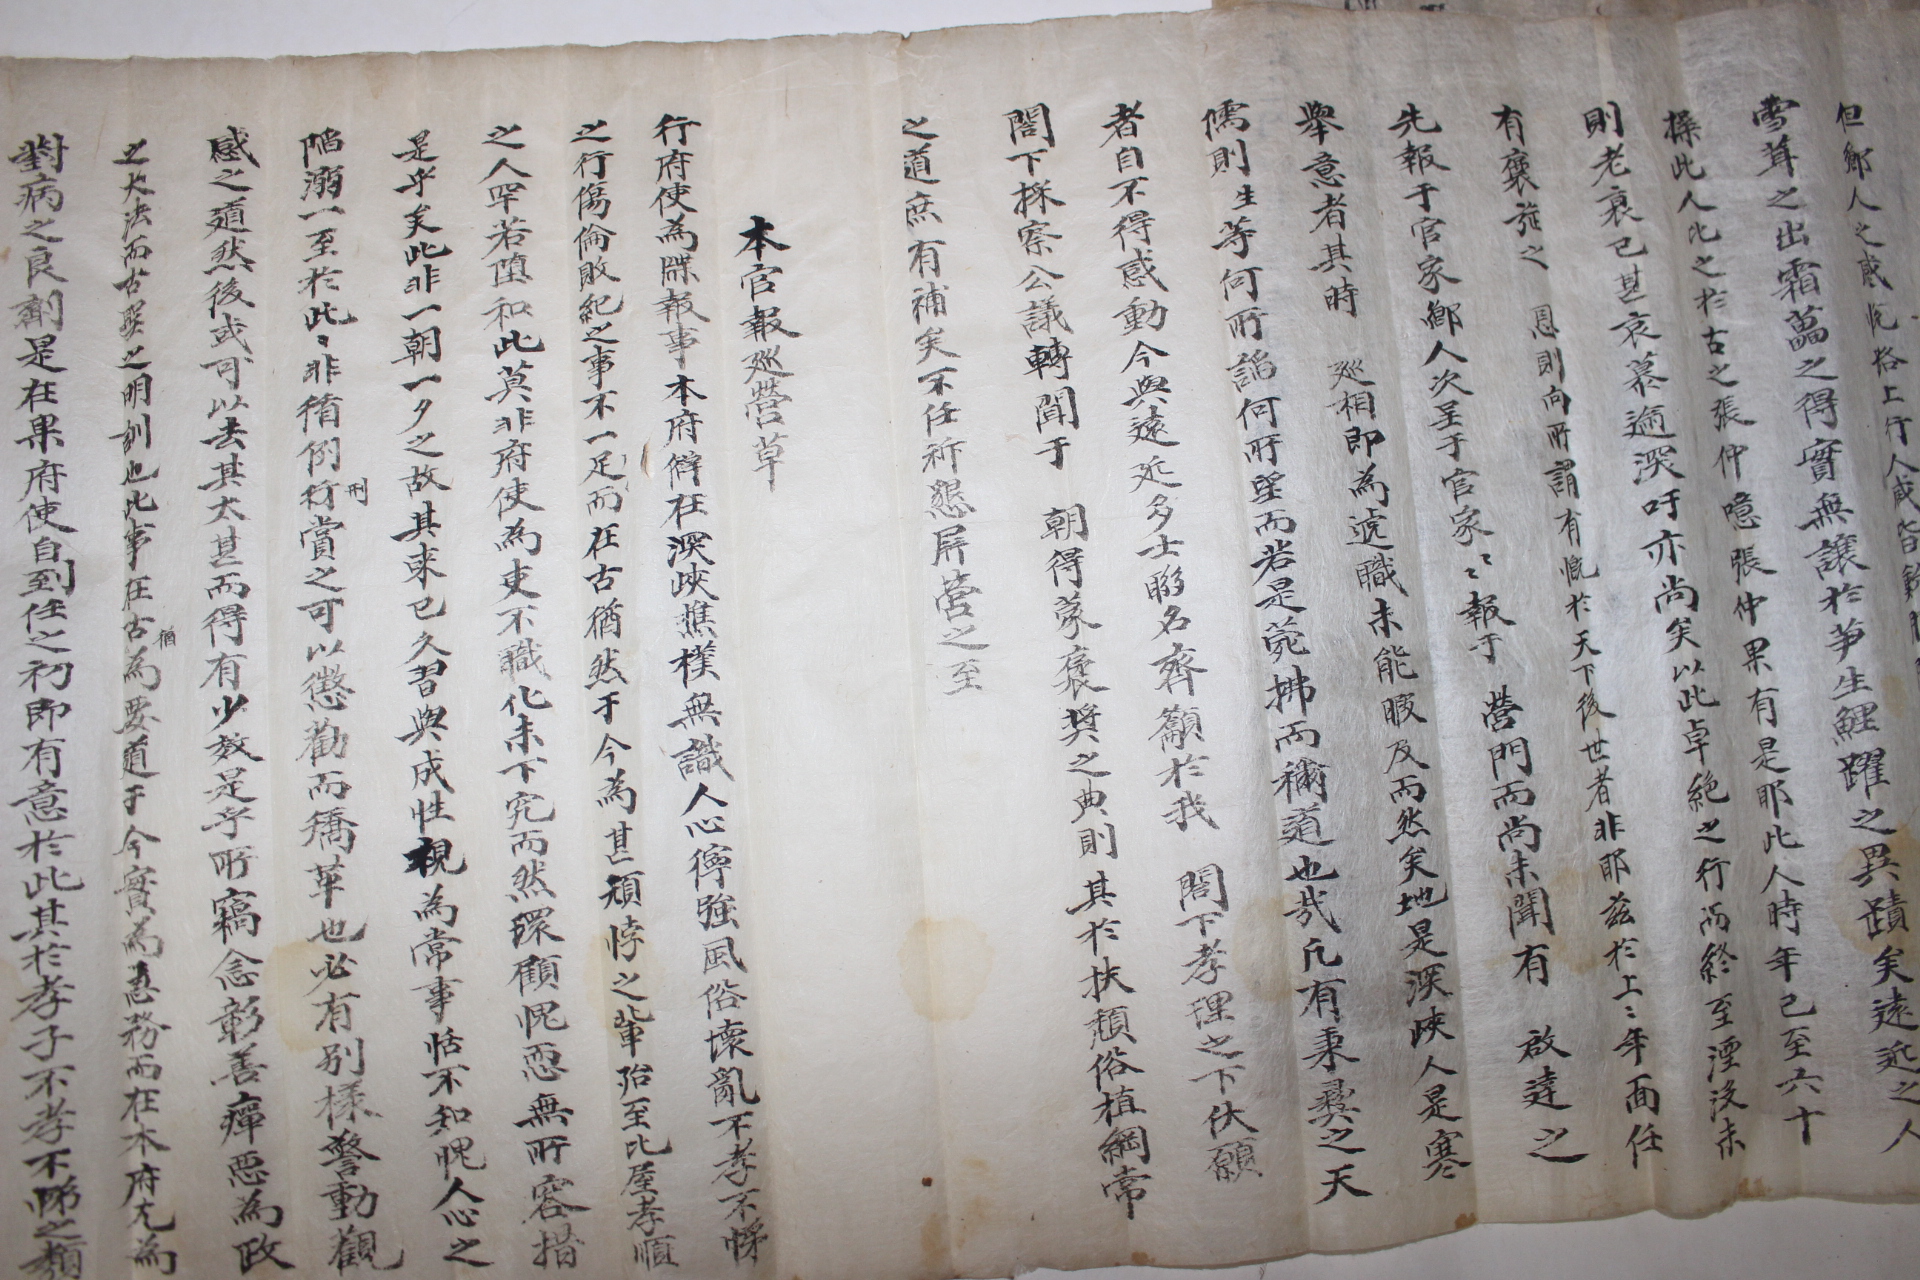 但鄉人之感化格上行人咸皆
雪茸之出霜蓲之得實無讓於笋生鯉躍之異蹟矣遠近之人
操此人比之於古之張仲噫張仲果有是耶此人時年已至六十
則老衰已甚哀慕逾深吁亦尚矣以此卓絶之行而終至湮沒未
有褒旌之 恩則向所謂有慨於天下後世者非耶茲於上上年面任
先報于官家鄉人次呈于官家官家報于 營門而尚未聞有 啟達之
擧意者其時 巡相即爲遞職未能暇及而然矣地是深峽人是寒
儒則生等何所謟何所望而若是菀拂而稱道也哉凡有秉彛之天
者自不得感動今與遠近多士聯名齊籲於我 閤下孝理之下伏願
閤下採察公議轉聞于 朝得蒙褒奬之典則其於扶頹俗植綱常
之道庶有補矣不任祈懇屛營之至
本官報巡營草
行府使爲牒報事本府僻在深峽蕉樸無識人心獰強風俗壞亂不孝不悌
之行傷倫敗紀之事不一足而在古猶然于今爲甚頑悖之輩殆至比屋孝順
之人罕若堕和此莫非府使爲吏不職化未下究而然環顧愧恧無所容措
是乎矣此非一朝一夕之故其來已久習與成性視爲常事恬不知愧人心之
陷溺一至於此此非循例行刑賞之可以懲勸而矯革也必有別樣警動觀
感之道然後或可以去其太甚而得有少效是乎所竊念彰善癉惡爲政
之大法而古聖之明訓也此事在古猶爲要道于今實爲急務而在本府尤爲
對病之良劑是在果府使自到任之初即有意於此其於孝子不孝不悌之類